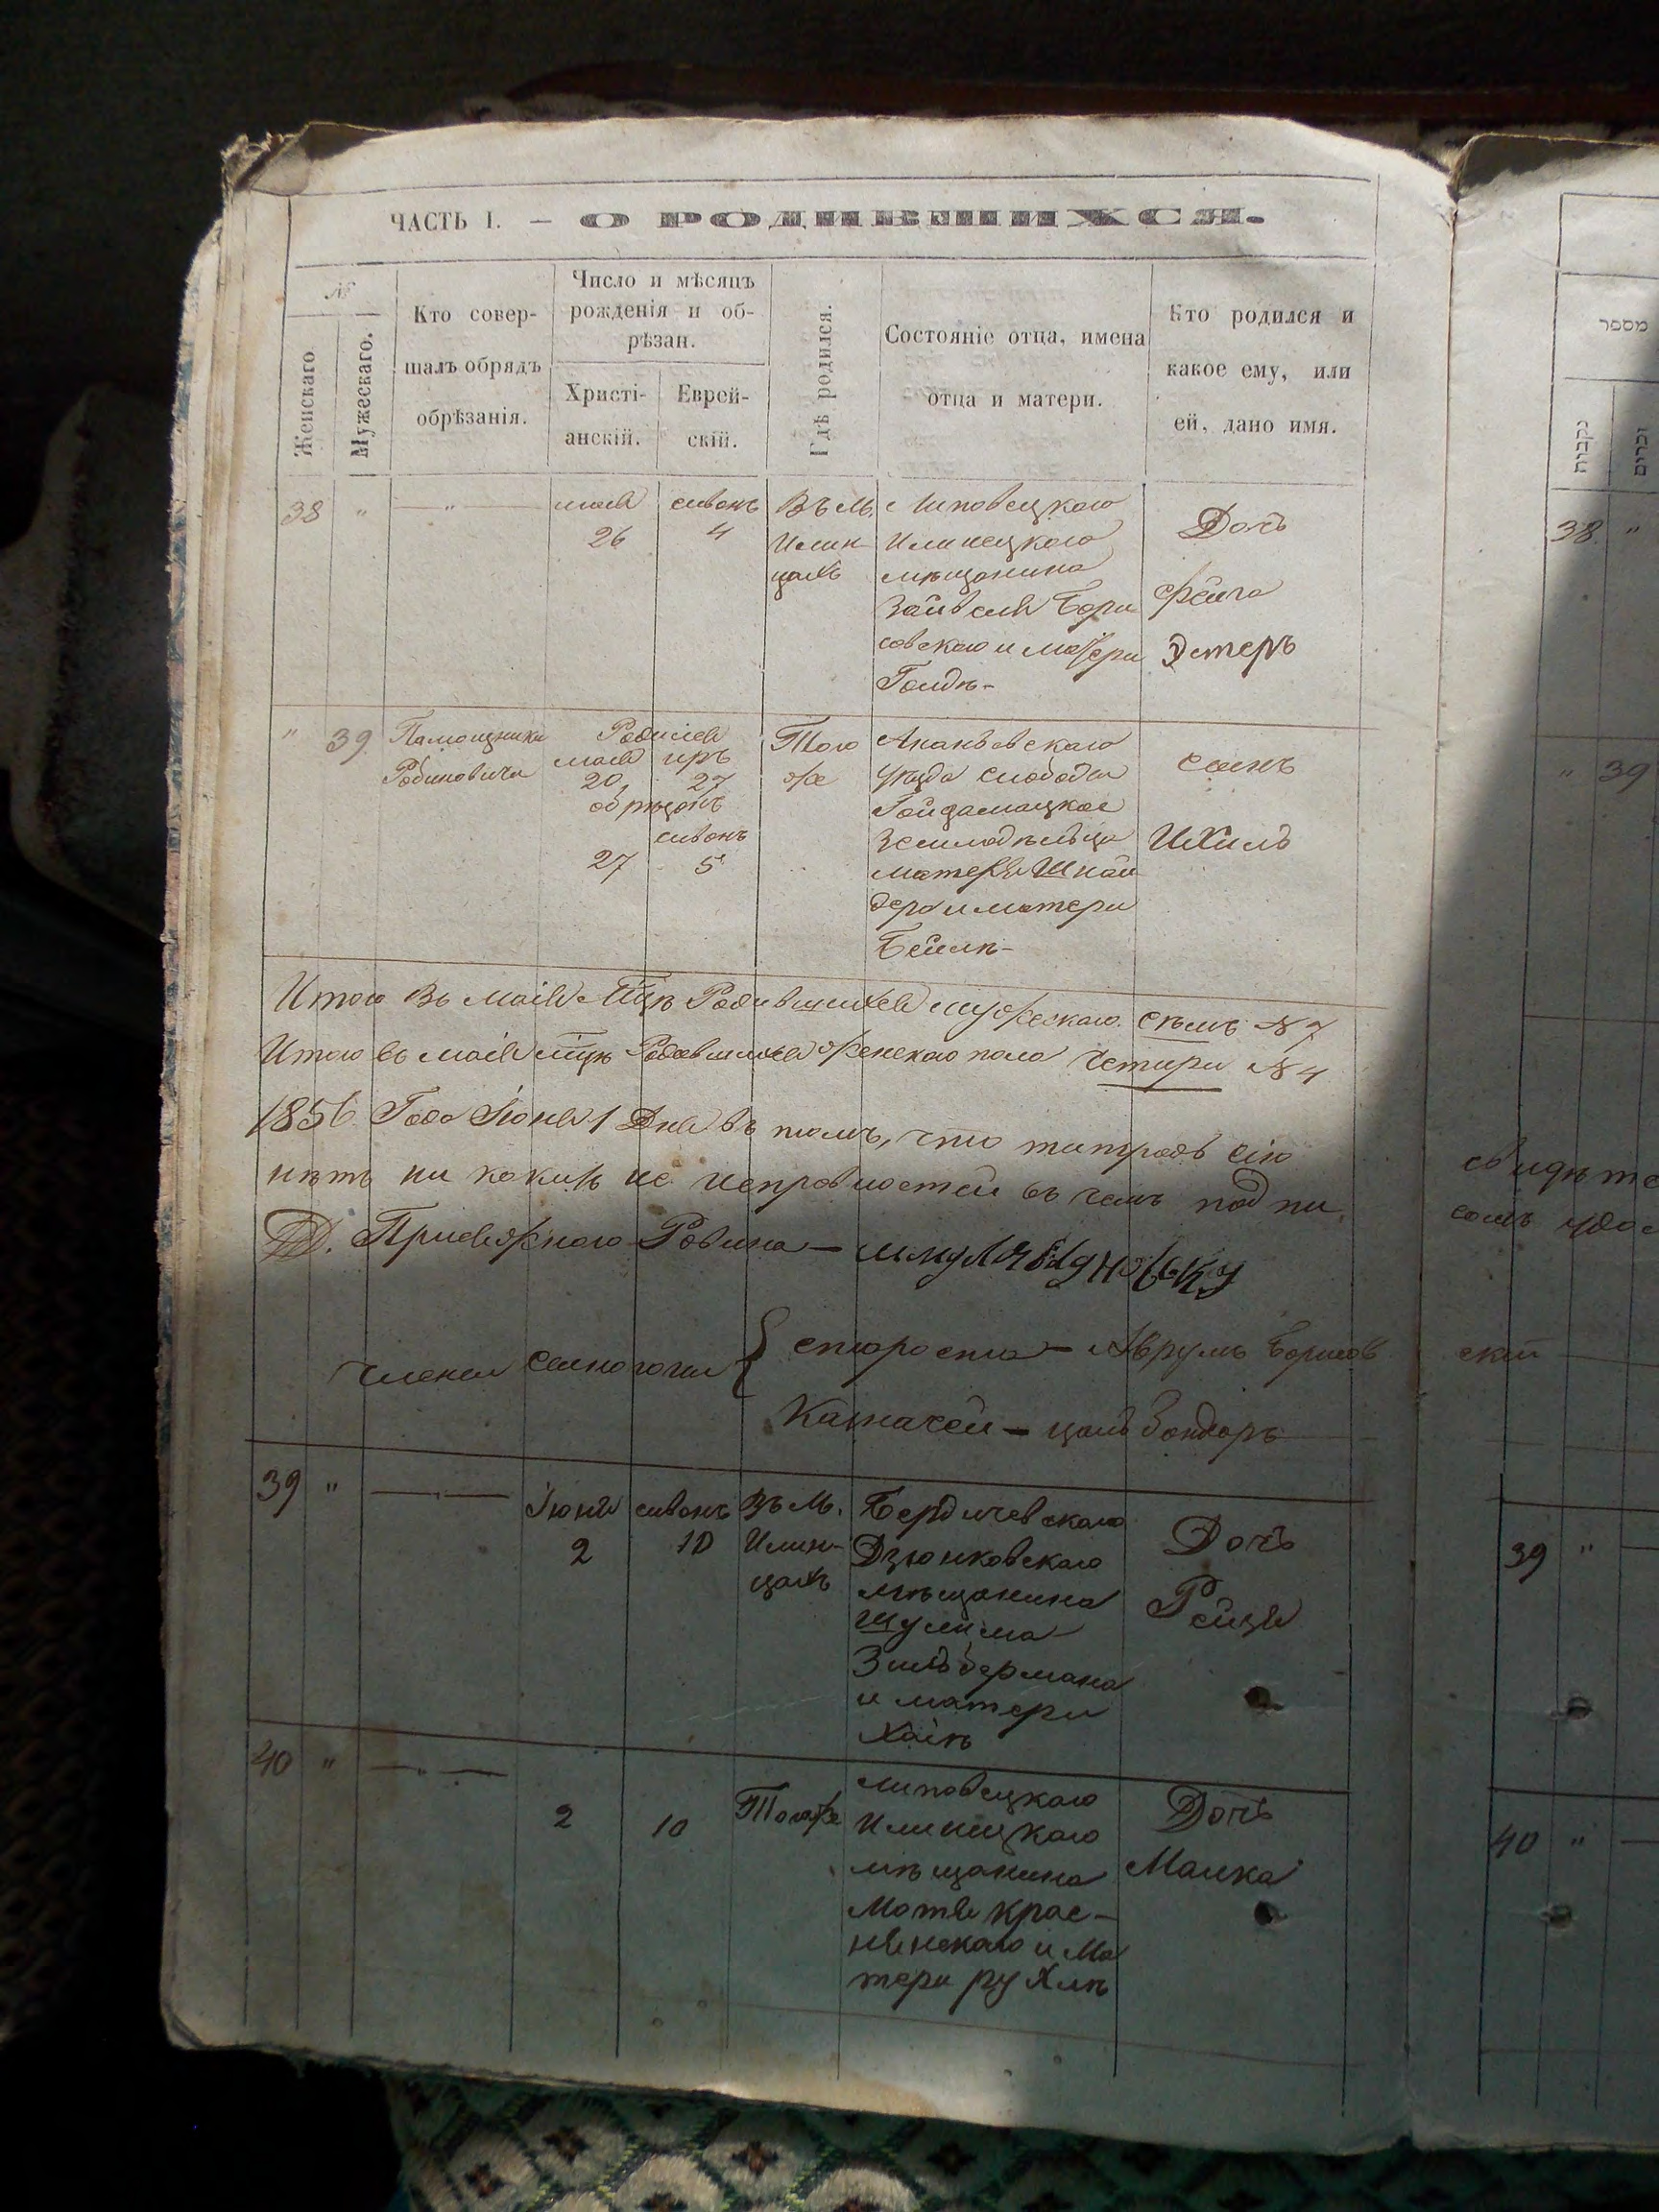 ЧАСТЬ I. — О РОДИВШИХСЯ.
№
Женскаго
Мужескаго.
Кто совер-
шалъ обрядъ
обрѣзанія.
Число и мѣсяцъ
рожденія и об-
рѣзан.
Христі-
анскій.
Еврей-
скій.
Гдѣ родился.
Состояніе отца, имена
отца и матери.
Кто родился и
какое ему, или
ей, дано имя.
38 " — " —
мая
26
сивонъ
4
Въ м.
Илин-
цахъ
Липовецкаго
Илинецкаго
мѣщанина
Зайвеля Бори
совскаго и матери
Голдѣ-
Дочь
Фейга
Эстеръ
" 39
Помощника
Рабиновича
Родился
мая иръ
20, 27
обрѣзанъ
сивонъ
27 5
Того
же
Ананьевскаго
уѣзда слободы
Гойдамацкое
Земледѣльца
Шнай
дера и матери
Бейлѣ-
сынъ
Ихиль
Итого въ маія Родившихся мужескаго семь № 7
Итого въ маія Родившихся женскаго пола четыри № 4
1856 Года Іюня 1 Дня въ томъ, что титрадъ сію
нѣтъ ни какихъ не исправностей въ чемъ под пи
Д. Присяжнаго Равина —
члены синогоги { староста — Аврумъ Борисов
Казначей — Бондаръ
39 " — —
Іюня
2
сивонъ
10
Въ м.
Илин-
цахъ
Бердичевскаго
Дзюнковскаго
мѣщанина
Шулима
Зильбермана
и матери
Хаіѣ
Дочь
Рейзя
40 " — " —
2
10
Тогоже
Липовецкаго
Илинецкаго
мѣщанина
Мотя Крас-
нянскаго и Ма
тери рухлѣ
Дочь
Малка
מספר
נקבות
זכרים
38 "
" 39
ский
39 "
40 "